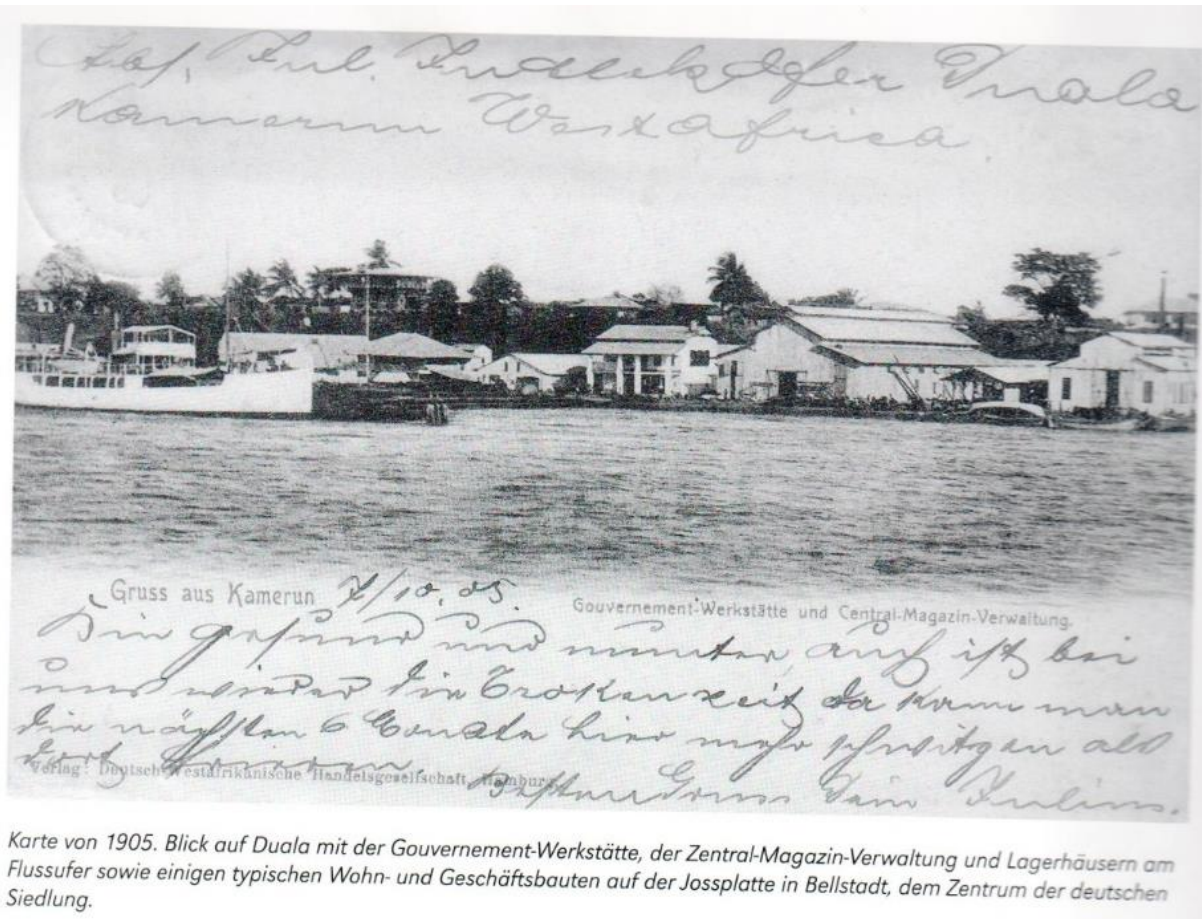 Abs. Jul. Duala
Kamerun Westafrica.
Gruss aus Kamerun 7/10.05.
Gouvernement-Werkstätte und Central-Magazin-Verwaltung.
Bin gesund und munter, auch ist bei
uns wieder die Trokenzeit da kann man
die nächsten 6 Monate hier mehr schwitzen als
dort frieren.
Verlag: Deutsch-Westafrikanische Handelsgesellschaft, Hamburg.
Besten Gruss Dein Julius.
Karte von 1905. Blick auf Duala mit der Gouvernement-Werkstätte, der Zentral-Magazin-Verwaltung und Lagerhäusern am
Flussufer sowie einigen typischen Wohn- und Geschäftsbauten auf der Jossplatte in Bellstadt, dem Zentrum der deutschen
Siedlung.